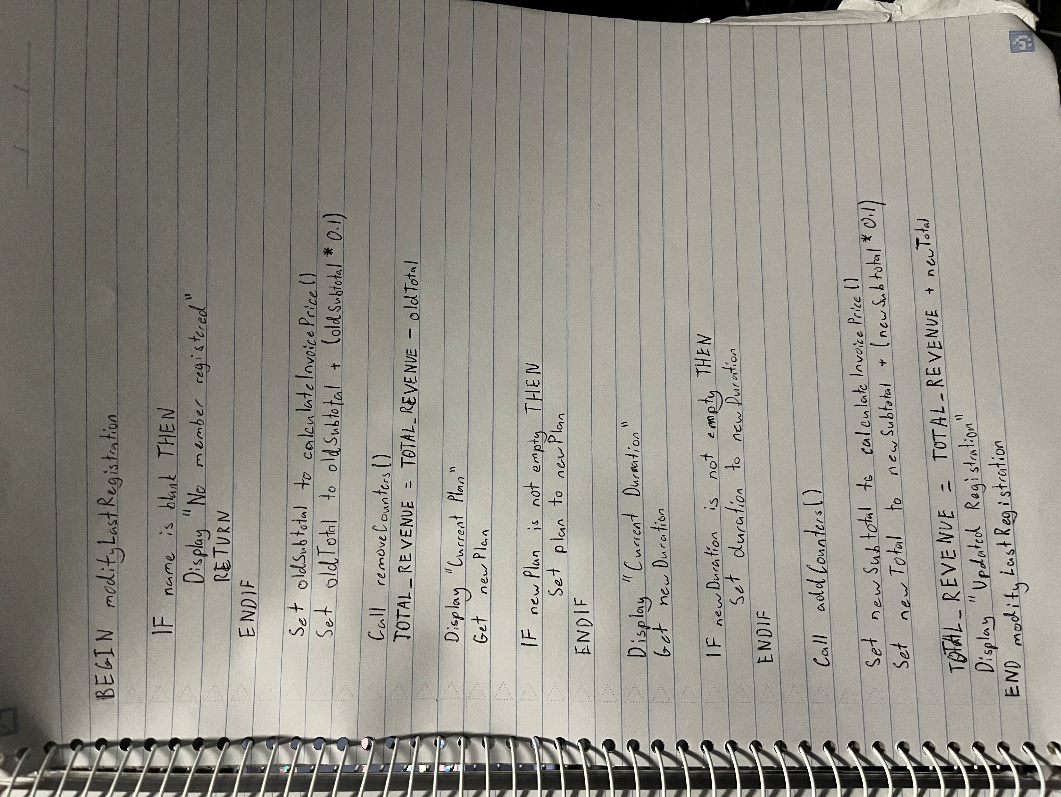 BEGIN modifyLastRegistration
IF name is blank THEN
Display "No member registered"
RETURN
ENDIF
Set oldSubtotal to calculateInvoicePrice()
Set oldTotal to oldSubtotal + (oldSubtotal * 0.1)
Call removeCounters()
TOTAL_REVENUE = TOTAL_REVENUE - oldTotal
Display "Current Plan"
Get newPlan
IF newPlan is not empty THEN
Set plan to newPlan
ENDIF
Display "Current Duration"
Get newDuration
IF newDuration is not empty THEN
Set duration to newDuration
ENDIF
Call addCounters()
Set newSubtotal to calculateInvoicePrice()
Set newTotal to newSubtotal + (newSubtotal * 0.1)
TOTAL_REVENUE = TOTAL_REVENUE + newTotal
Display "Updated Registration"
END modifyLastRegistration